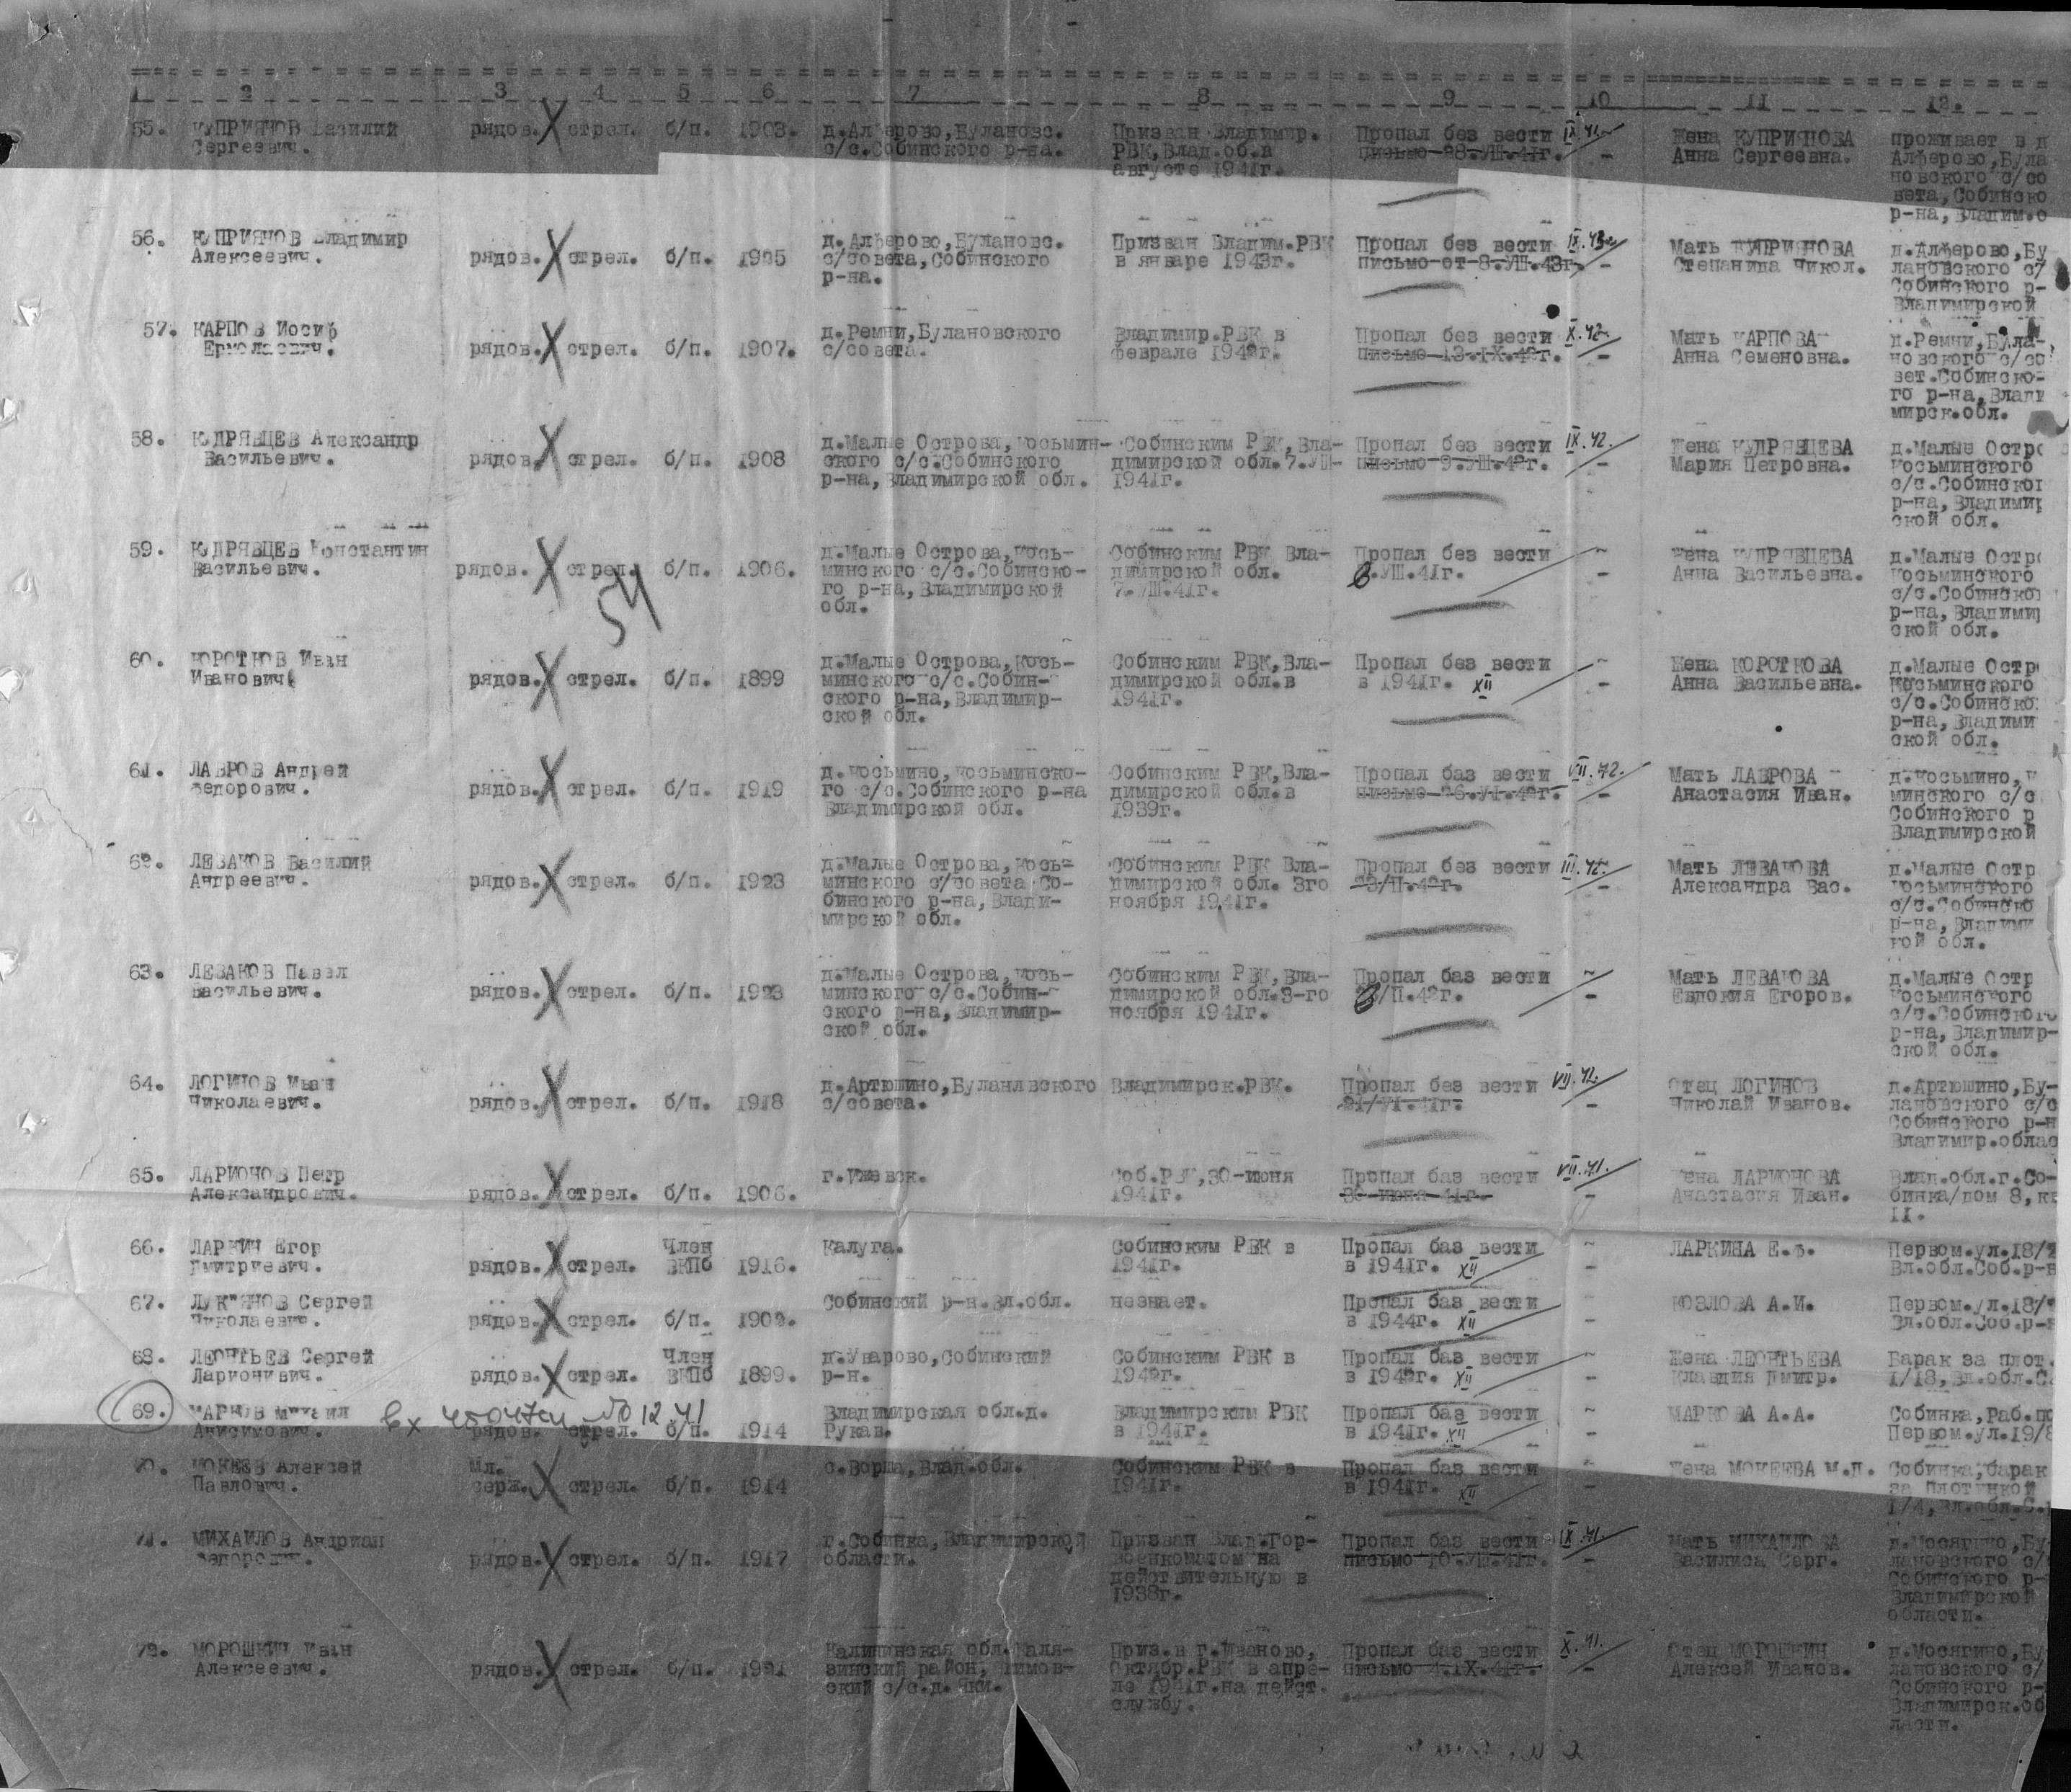 1 2 3 4 5 6 7 8 9 10 11 12.
55. КУПРИЯНОВ Василий рядов. стрел. б/п. 1903. д.Алферово,Булановс. Призван Владимир. Пропал без вести IX.41 Жена КУПРИЯНОВА проживает в д
Сергеевич. с/с.Собинского р-на. РВК,Влад.об.в письмо 28.УШ.41г. - Анна Сергеевна. Алферово,Була
августе 1941г. новского с/со
вета,Собинско
р-на,Владим.о
56. КУПРИЯНОВ Владимир рядов. стрел. б/п. 1925 д.Алферово,Булановс. Призван Владим.РВК Пропал без вести IX.43 Мать КУПРИЯНОВА д.Алферово,Бу
Алексеевич. с/совета,Собинского в январе 1943г. письмо от 8.УШ.43г. - Степанида Никол. лановского с/
р-на. Собинского р-
Владимирской
57. КАРПОВ Иосиф рядов. стрел. б/п. 1907. д.Ремни,Булановского Владимир.РВК в Пропал без вести X.42 Мать КАРПОВА д.Ремни,Була-
Ермолаевич. с/совета. феврале 1942г. письмо 13.IX.42г. - Анна Семеновна. новского с/со
вет.Собинско-
го р-на,Влади
мирск.обл.
58. КУДРЯВЦЕВ Александр рядов. стрел. б/п. 1908 д.Малые Острова,Косьмин- Собинским РВК,Вла- Пропал без вести IX.42. Жена КУДРЯВЦЕВА д.Малые Остро
Васильевич. ского с/с.Собинского димирской обл.7.УШ- письмо 9.УШ.42г. - Мария Петровна. Косьминского
р-на,Владимирской обл. 1941г. с/с.Собинског
р-на,Владимир
ской обл.
59. КУДРЯВЦЕВ Константин рядов. стрел. б/п. 1906. д.Малые Острова,Кось- Собинским РВК Вла- Пропал без вести Жена КУДРЯВЦЕВА д.Малые Остро
Васильевич. минского с/с.Собинско- димирской обл. в.УШ.41г. - Анна Васильевна. Косьминского
го р-на,Владимирской 7.УШ.41г. с/с.Собинско
обл. р-на,Владимир
ской обл.
54
60. КОРОТКОВ Иван рядов. стрел. б/п. 1899 д.Малые Острова,Кось- Собинским РВК,Вла- Пропал без вести Жена КОРОТКОВА д.Малые Остр
Иванович. минского с/с.Собин- димирской обл.в в 1941г. XII - Анна Васильевна. Косьминского
ского р-на,Владимир- 1941г. с/с.Собинско
ской обл. р-на,Владими
ской обл.
61. ЛАВРОВ Андрей рядов. стрел. б/п. 1919 д.Косьмино,Косьминско- Собинским РВК,Вла- Пропал баз вести VII.42. Мать ЛАВРОВА д.Косьмино,К
Федорович. го с/с.Собинского р-на димирской обл.в письмо 26.УI.42г. - Анастасия Иван. минского с/с
Владимирской обл. 1939г. Собинского р
Владимирской
62. ЛЕВАКОВ Василий рядов. стрел. б/п. 1923 д.Малые Острова,Кось- Собинским РВК Вла- Пропал без вести III.42. Мать ЛЕВАКОВА д.Малые Остр
Андреевич. минского с/совета Со- димирской обл. 3го 23/П.42г. - Александра Вас. Косьминского
бинского р-на,Влади- ноября 1941г. с/с.Собинско
мирской обл. р-на,Владими
кой обл.
63. ЛЕВАКОВ Павел рядов. стрел. б/п. 1923 д.Малые Острова,Кось- Собинским РВК,Вла- Пропал баз вести Мать ЛЕВАКОВА д.Малые Остр
Васильевич. минского с/с.Собин- димирской обл.3-го в/П.42г. - Евдокия Егоров. Косьминского
ского р-на,Владимир- ноября 1941г. с/с.Собинского
ской обл. р-на,Владимир-
ской обл.
64. ЛОГИНОВ Иван рядов. стрел. б/п. 1918 д.Артюшино,Буланлвского Владимирск.РВК. Пропал без вести VII.42. Отец ЛОГИНОВ д.Артюшино,Бу-
Николаевич. с/совета. 21/УI.41г. - Николай Иванов. лановского с/с
Собинского р-н
Владимир.облас
65. ЛАРИОНОВ Петр рядов. стрел. б/п. 1906. г.Ижевск. Соб.РВК,30-июня Пропал баз вести VII.41. Жена ЛАРИОНОВА Влад.обл.г.Со-
Александрович. 1941г. 30-июня 41г. - Анастасия Иван. бинка/дом 8,кв
II.
66. ЛАРКИН Егор рядов. стрел. Член 1916. Калуга. Собинским РВК в Пропал баз вести ЛАРКИНА Е.Ф. Первом.ул.18/
Дмитриевич. ВКПб 1941г. в 1941г. XII - Вл.обл.Соб.р-н
67. ЛУК"ЯНОВ Сергей рядов. стрел. б/п. 1902. Собинский р-н.Вл.обл. незнает. Пропал баз вести КОЗЛОВА А.И. Первом.ул.18/
Николаевич. в 1944г. XII - Вл.обл.Соб.р-н
68. ЛЕОНТЬЕВ Сергей рядов. стрел. Член 1899. д.Уварово,Собинский Собинским РВК в Пропал баз вести Жена ЛЕОНТЬЕВА Барак за плот.
Ларионивич. ВКПб р-н. 1942г. в 1942г. XII - Клавдия Дмитр. 1/18,Вл.обл.С
69. МАРКОВ Михаил рядов. стрел. б/п. 1914 Владимирская обл.д. Владимирским РВК Пропал баз вести МАРКОВА А.А. Собинка,Раб.по
Анисимович. Рукав. в 1941г. в 1941г. XII - Первом.ул.19/8
70. МОКЕЕВ Алексей Мл. стрел. б/п. 1914 с.Ворша,Влад.обл. Собинским РВК в Пропал баз вести Жена МОКЕЕВА М.П. Собинка,барак
Павлович. серж. 1941г. в 1941г. XII - за плотинкой
1/4,Вл.обл.С.
71. МИХАИЛОВ Андриан рядов. стрел. б/п. 1917 г.Собинка,Владимирской Призван Влад.Гор- Пропал баз вести IX.41. Мать МИХАИЛОВА д.Мосягино,Бу
Федорович. области. военкоматом на письмо 10.УШ.41г. - Василиса Серг. лановского с/
действительную в Собинского р-
1938г. Владимирской
области.
72. МОРОШКИН Иван рядов. стрел. б/п. 1921 Калининская обл.Каля- Приз.в г.Иваново, Пропал баз вести X.41. Отец МОРОШКИН д.Мосягино,Бу
Алексеевич. зинский район, Октябр.РВК в апре- письмо 4.IX.41г. - Алексей Иванов. лановского с/
ский с/с.д. Яки. ле 1941г.на дейст. Собинского р-
службу. Владимирск.об
ласти.